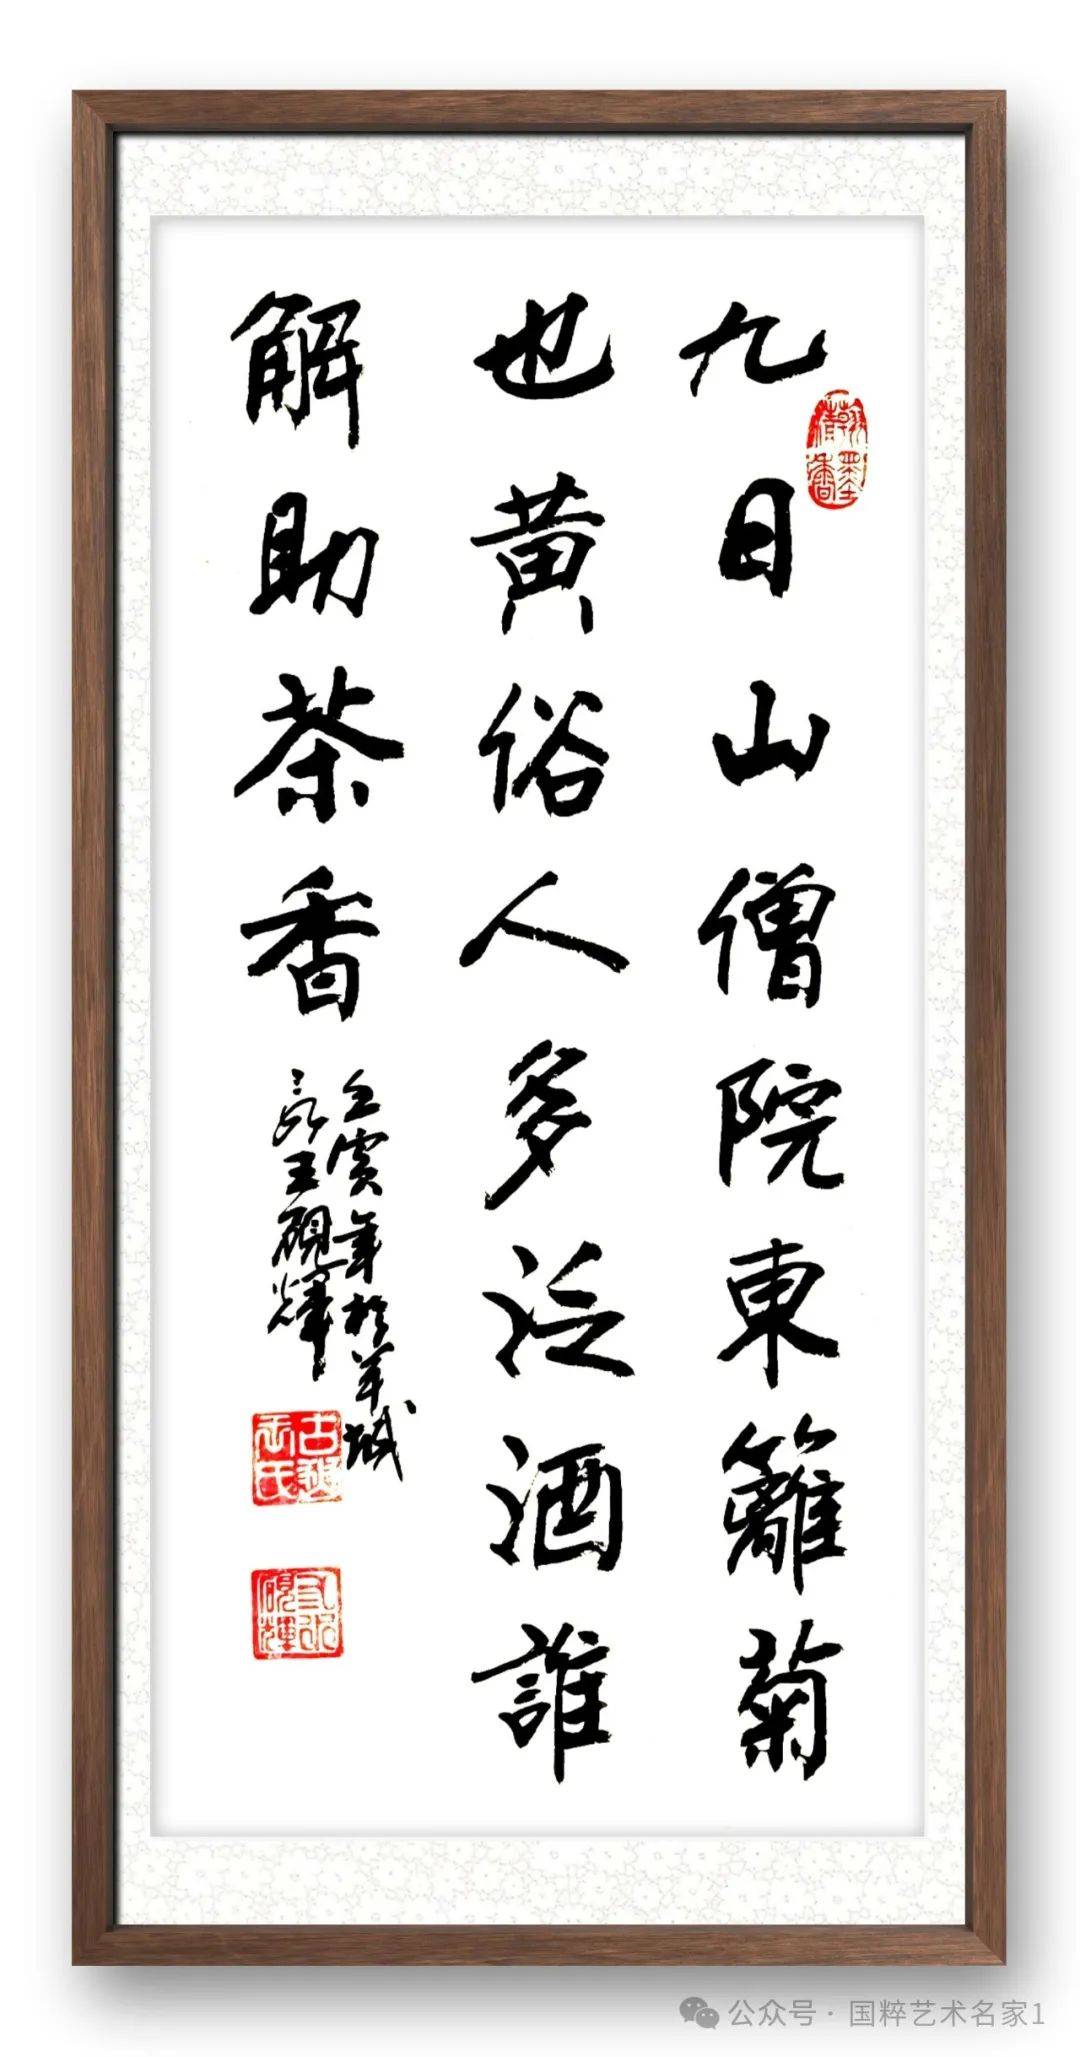 九日山僧院東籬菊
也黄俗人多泛酒誰
解助茶香
壬寅年於羊城
王硯輝
翰墨清香
公众号·国粹艺术名家1